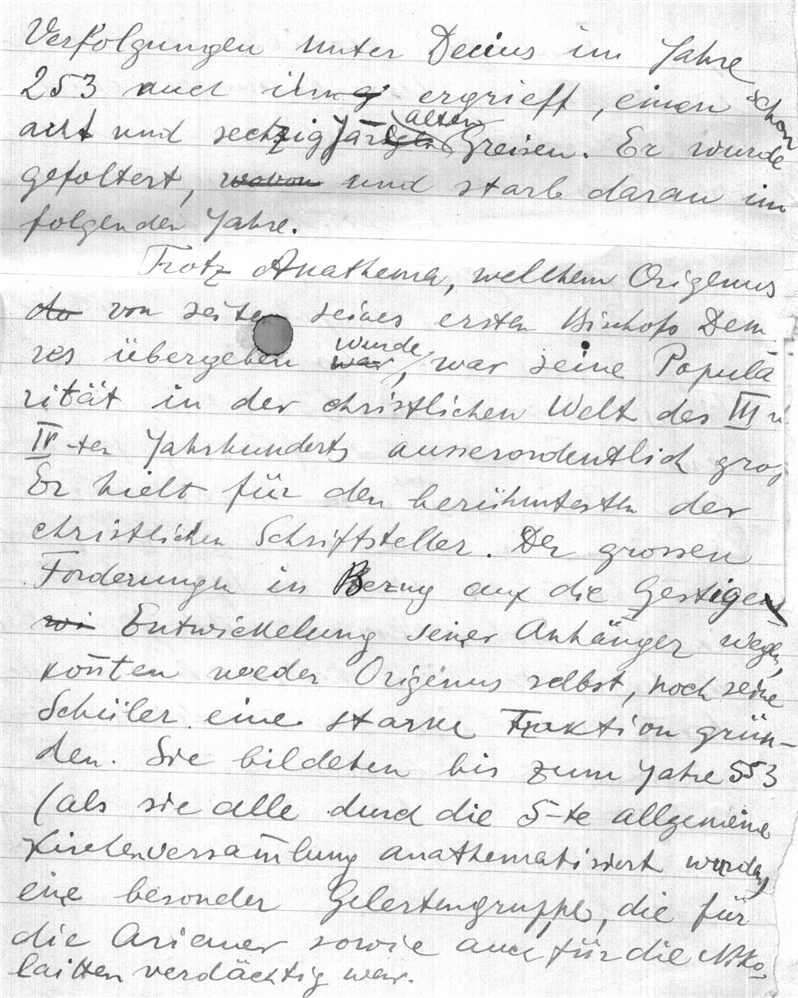 Verfolgungen unter Decius im Jahre
253 auch ihn ergrieff, einen schon
acht und sechzig Jär alten Greisen. Er wurde
gefoltert, wovon und starb daran im
folgenden Jahre.
Trotz Anathema, welchem Origenus
do von seiten seines ersten Bischofs Dem
res übergeben war wurde, war seine Populä
rität in der christlichen Welt des III u
IV-ten Jahrhunderts ausserordentlich gros
Er hielt für den berühmtesten der
christlichen Schriftsteller. Der grossen
Forderungen in Bezug auf die Gestigen
wi Entwickelung seiner Anhänger wegen,
konnten weder Origenus selbst, noch seine
Schüler eine starke Fraktion grün-
den. Sie bildeten bis zum Jahre 553
(als sie alle durch die 5-te allgemeine
Kirchenversammlung anathematisiert wurden)
eine besonder Gelertengruppe, die für
die Arianer sowie auch für die Niko-
laitten verdächtig war.